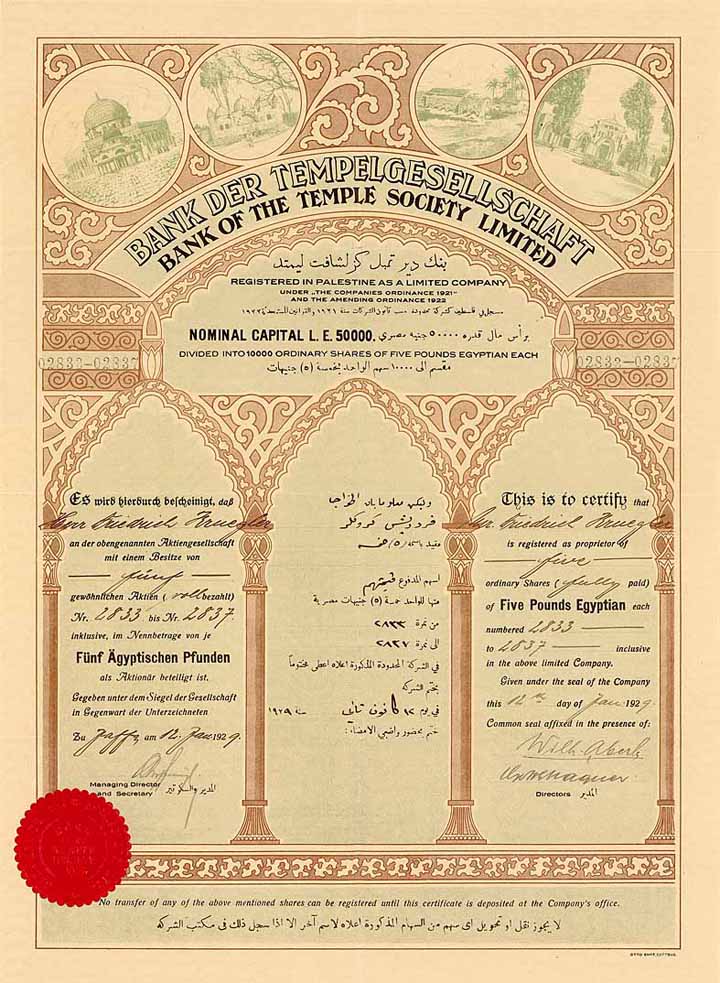 BANK DER TEMPELGESELLSCHAFT
BANK OF THE TEMPLE SOCIETY LIMITED
بنك دير تمبل كزلشافت ليمتد
REGISTERED IN PALESTINE AS A LIMITED COMPANY
UNDER „THE COMPANIES ORDINANCE 1921"
AND THE AMENDING ORDINANCE 1922
مسجل في فلسطين كشركة محدودة حسب قانون الشركات سنة ١٩٢١ والقوانين المتممة ١٩٢٢
NOMINAL CAPITAL L. E. 50000. برأس مال قدره ٥٠٠٠٠ جنيه مصري
DIVIDED INTO 10000 ORDINARY SHARES OF FIVE POUNDS EGYPTIAN EACH
مقسم الى ١٠٠٠٠ سهم الواحد بخمسة (٥) جنيهات
02833-02837
02833-02837
Es wird hierdurch bescheinigt, daß
Herr Friedrich Kruegler
an der obengenannten Aktiengesellschaft
mit einem Besitze von
fünf
gewöhnlichen Aktien (vollbezahlt)
Nr. 2833 bis Nr. 2837
inklusive, im Nennbetrage von je
Fünf Ägyptischen Pfunden
als Aktionär beteiligt ist.
Gegeben unter dem Siegel der Gesellschaft
in Gegenwart der Unterzeichneten
Zu Jaffa, am 12. Jan. 1929.
Managing Director
and Secretary المدير والسكرتير
وليكن معلوما بان الخواجا
مقيد باسمه (٥) خمسة
اسهم المدفوع قيمتهم
منها للواحد خمسة (٥) جنيهات مصرية
من نمرة ٢٨٣٣
الى نمرة ٢٨٣٧
في الشركة المحدودة المذكورة اعلاه اعطى مختوماً
بختم الشركة
في يوم ١٢ كانون ثاني سنة ١٩٢٩
ختم بحضور واضعي الامضاء:
This is to certify that
Mr. Friedrich Kruegler
is registered as proprietor of
five
ordinary Shares (fully paid)
of Five Pounds Egyptian each
numbered 2833
to 2837 inclusive
in the above limited Company.
Given under the seal of the Company
this 12th day of Jan. 1929.
Common seal affixed in the presence of:
Directors المدير
No transfer of any of the above mentioned shares can be registered until this certificate is deposited at the Company's office.
لا يجوز نقل او تحويل اى سهم من السهام المذكورة اعلاه لاسم آخر الا اذا سجل ذلك فى مكتب الشركة